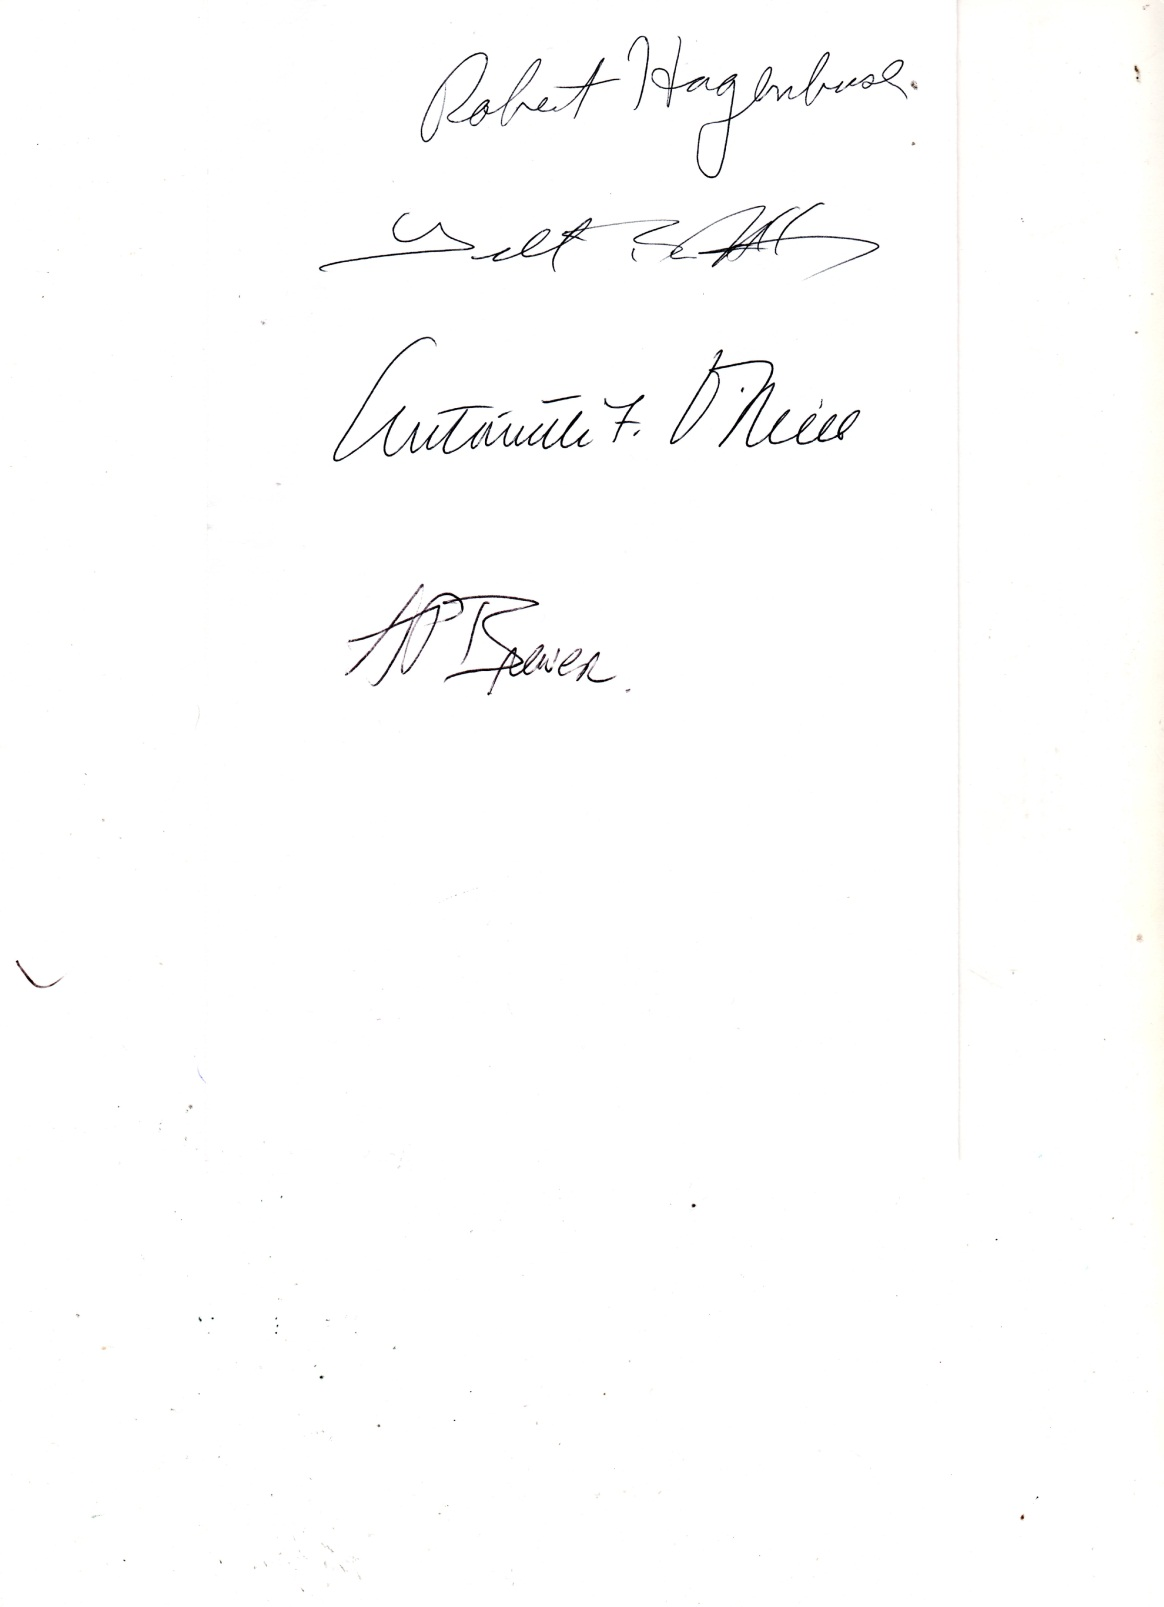 Robert Hagenbuse
Walt
Antoinette F. O'Neill
AP Brewer